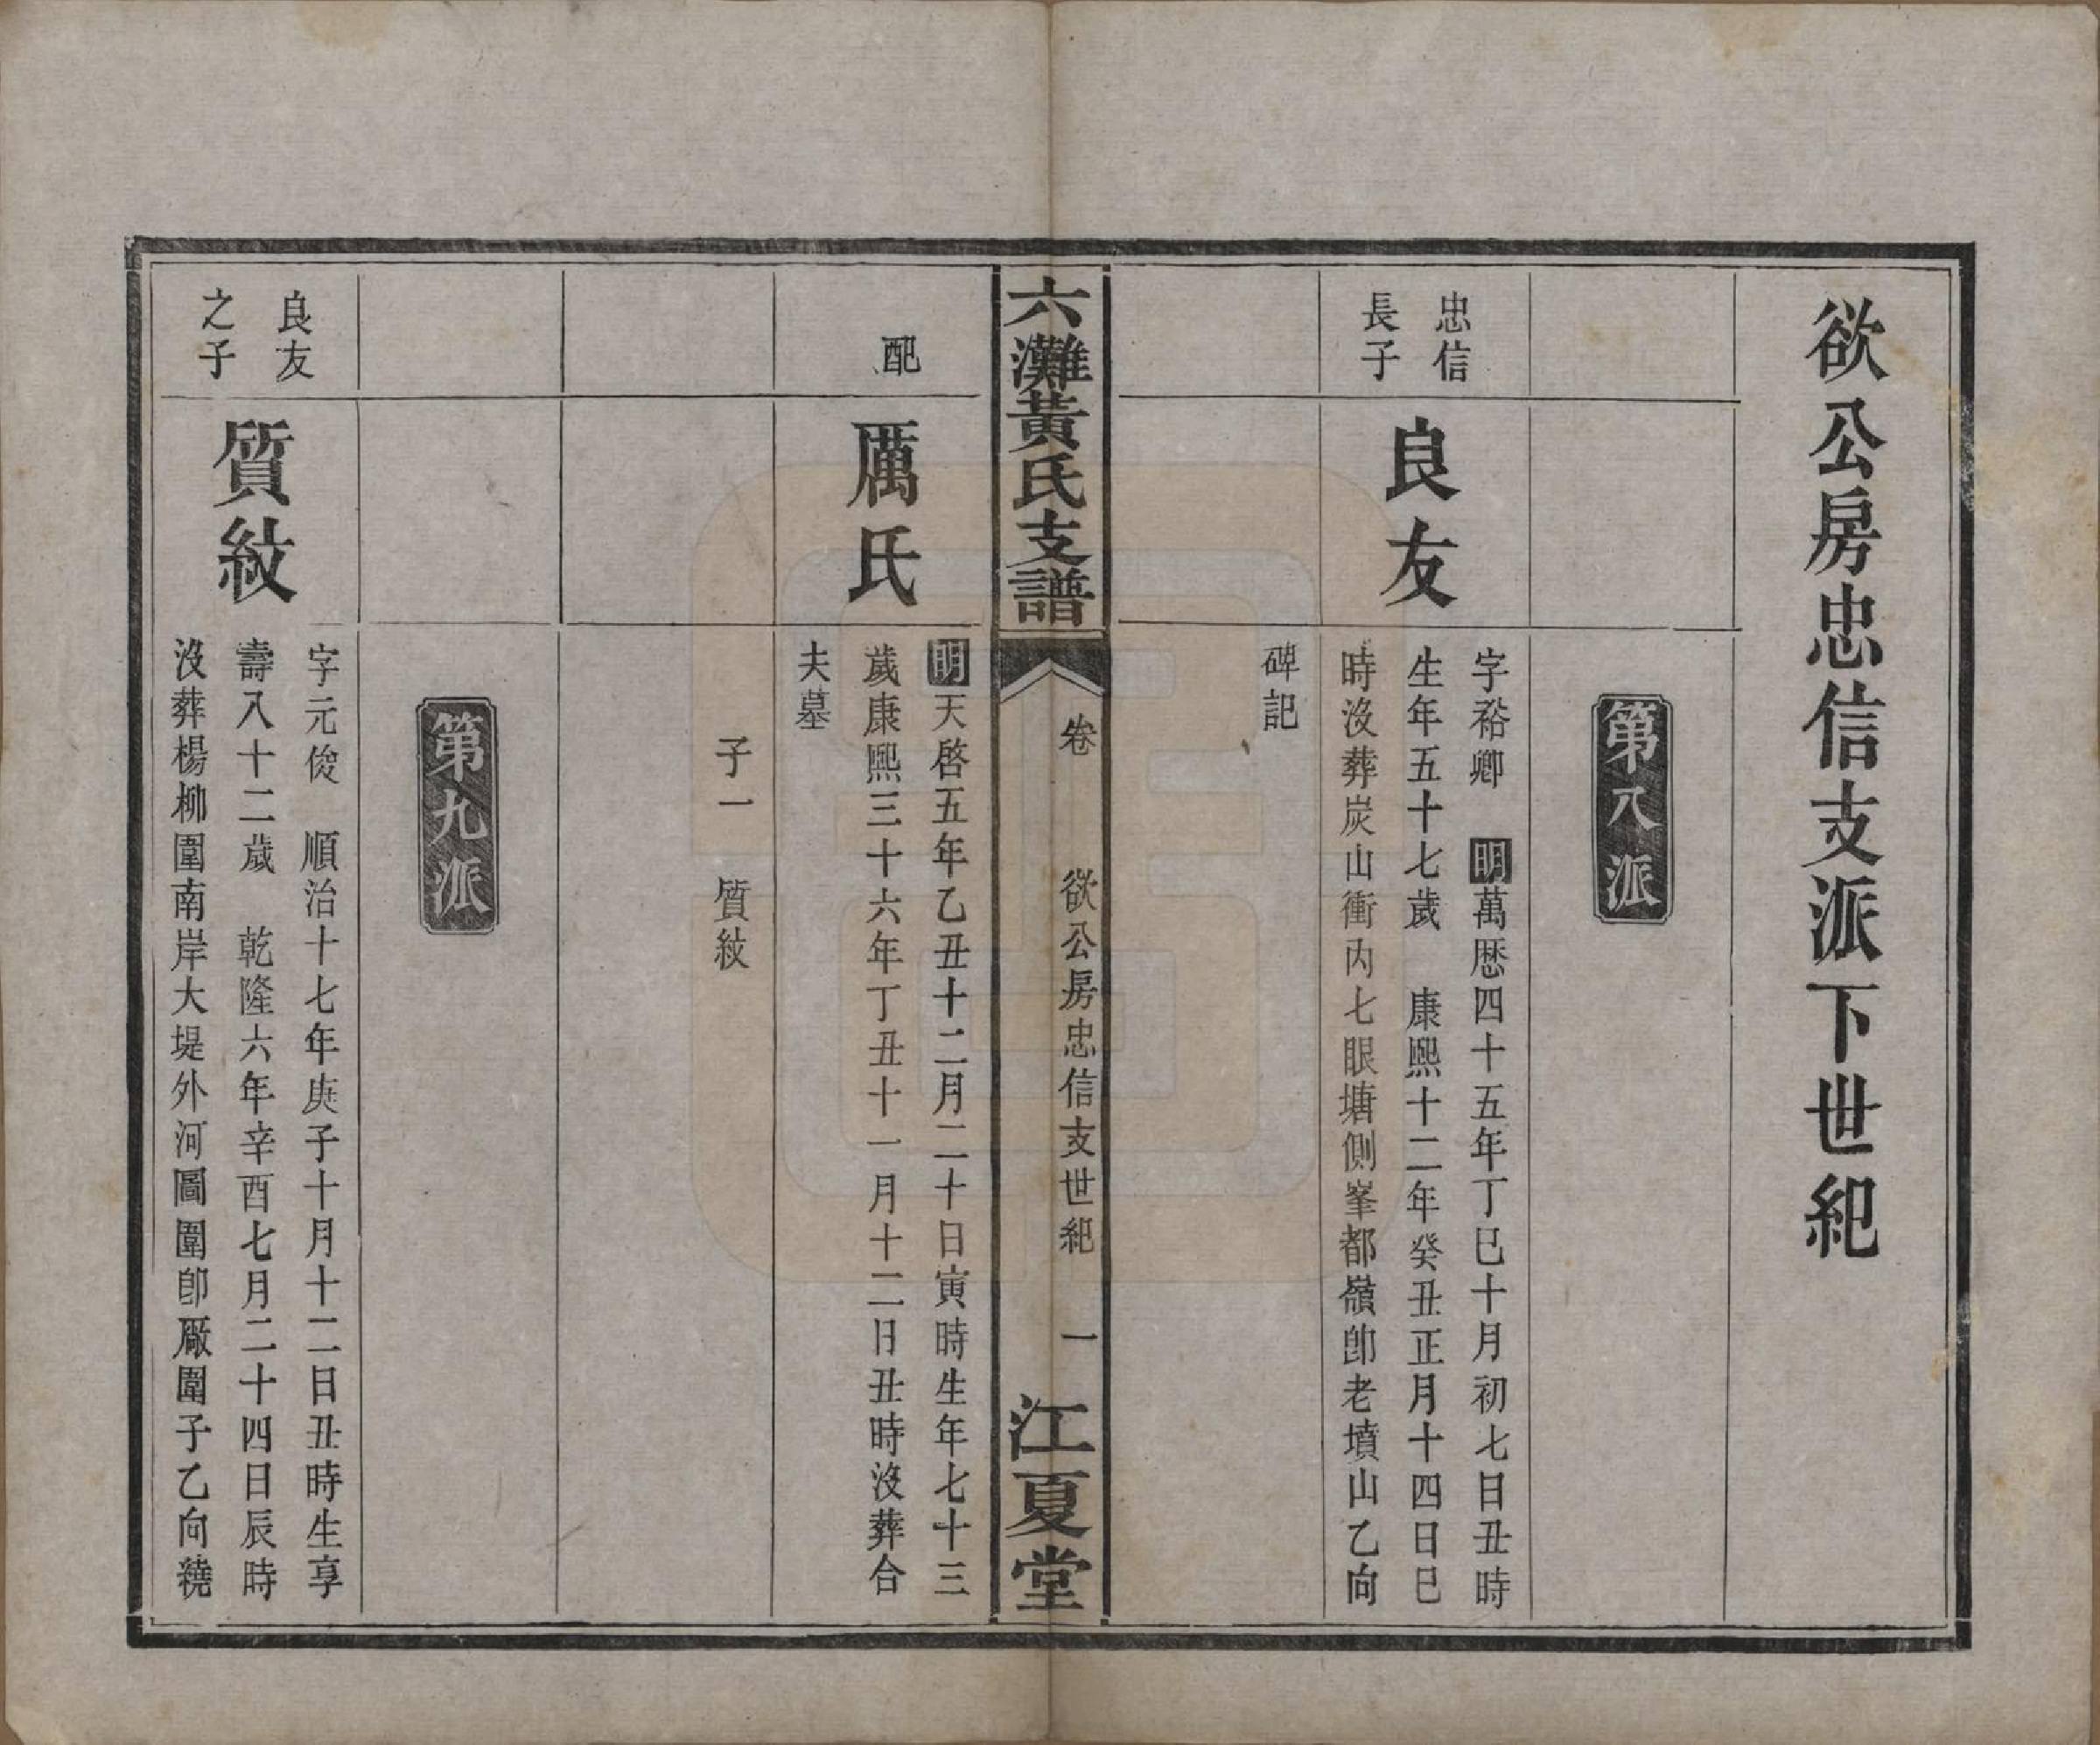 欲公房忠信支派下世紀
第八派
忠信
長子
良友
字裕卿　明萬歷四十五年丁巳十月初七日丑時
生年五十七歲　康熙十二年癸丑正月十四日巳
時沒葬炭山衝內七眼塘側峯都嶺卽老墳山乙向
碑記
六灘黃氏支譜
卷
欲公房忠信支世紀
一
江夏堂
配
厲氏
明天啓五年乙丑十二月二十日寅時生年七十三
歲康熙三十六年丁丑十一月十二日丑時沒葬合
夫墓
子一　質紋
第九派
良友
之子
質紋
字元俊　順治十七年庚子十月十二日丑時生享
壽八十二歲　乾隆六年辛酉七月二十四日辰時
沒葬楊柳圍南岸大堤外河圖圍卽厰圍子乙向繞